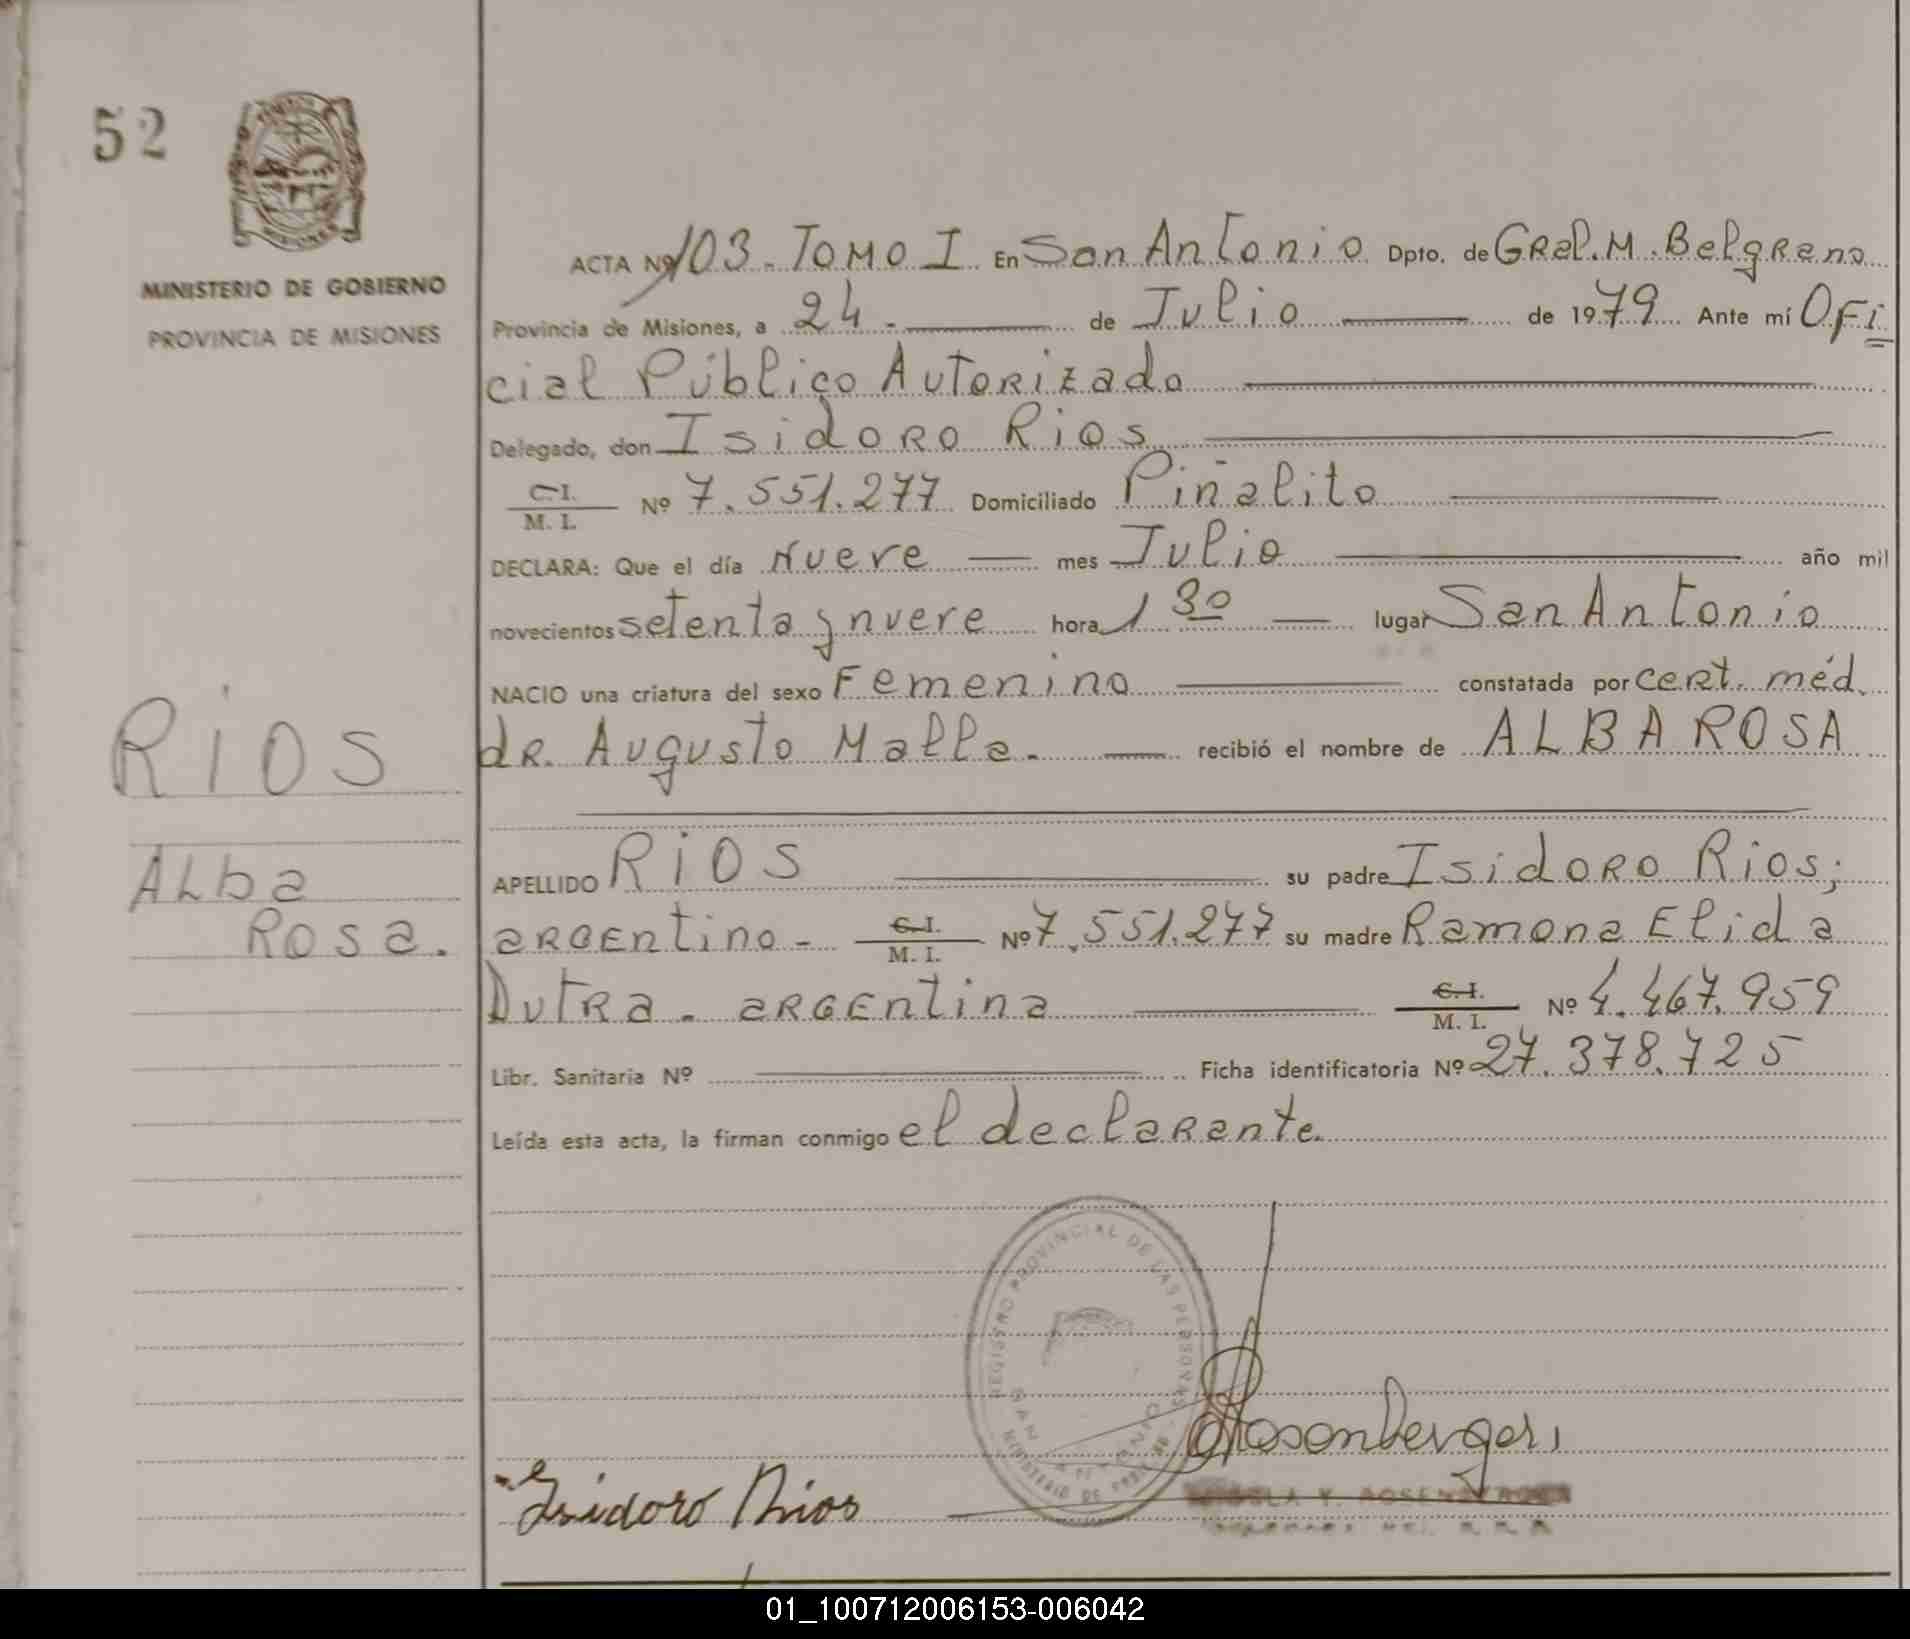 52
MINISTERIO DE GOBIERNO
PROVINCIA DE MISIONES
RiOS
ALba
Rosa.
ACTA Nº 103. TOMO I En San Antonio Dpto. de GRal. M. Belgrano
Provincia de Misiones, a 24 - de Julio de 1979 Ante mí Ofi
cial Público Autorizado
Delegado, don Isidoro Rios
C.I.
M. I. Nº 7.551.277 Domiciliado Piñalito
DECLARA: Que el día Nueve mes Julio año mil
novecientos setenta y nueve hora 1 30 lugar San Antonio
NACIO una criatura del sexo Femenino constatada por cert. méd.
dR. Augusto Malla. recibió el nombre de ALBA ROSA
APELLIDO RiOS su padre Isidoro Rios;
argentino - C.I.
M. I. Nº 7.551.277 su madre Ramona Elida
Dutra. argentina C.I.
M. I. Nº 4.467.959
Libr. Sanitaria Nº Ficha identificatoria Nº 27.378.725
Leída esta acta, la firman conmigo el declarante.
REGISTRO PROVINCIAL DE LAS PERSONAS
SAN ANTONIO
Isidoro Rios
Rosenberger
01_100712006153-006042